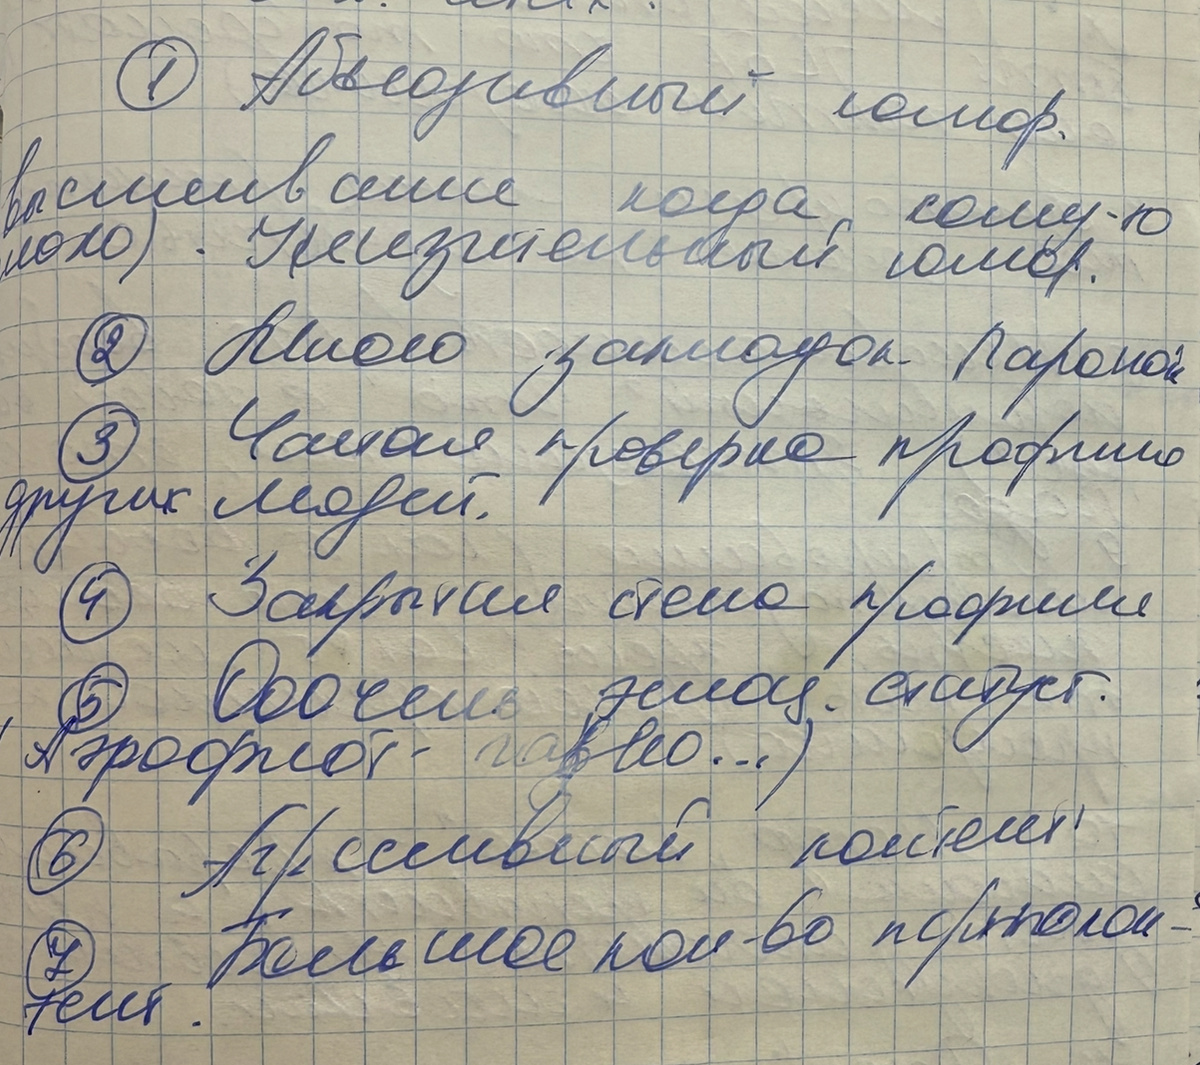 ① Абьюзивный юмор.
высмеивание когда кому-то
плохо). Унизительный юмор.
② Много закладок. Параной
③ Частая проверка профиля
других людей.
④ Закрытая стена профиля
⑤ Ооочень эмоц. статусы.
(Аэрофлот - гавно...)
⑥ Агрессивный контент
⑦ Большое кол-во
тент.